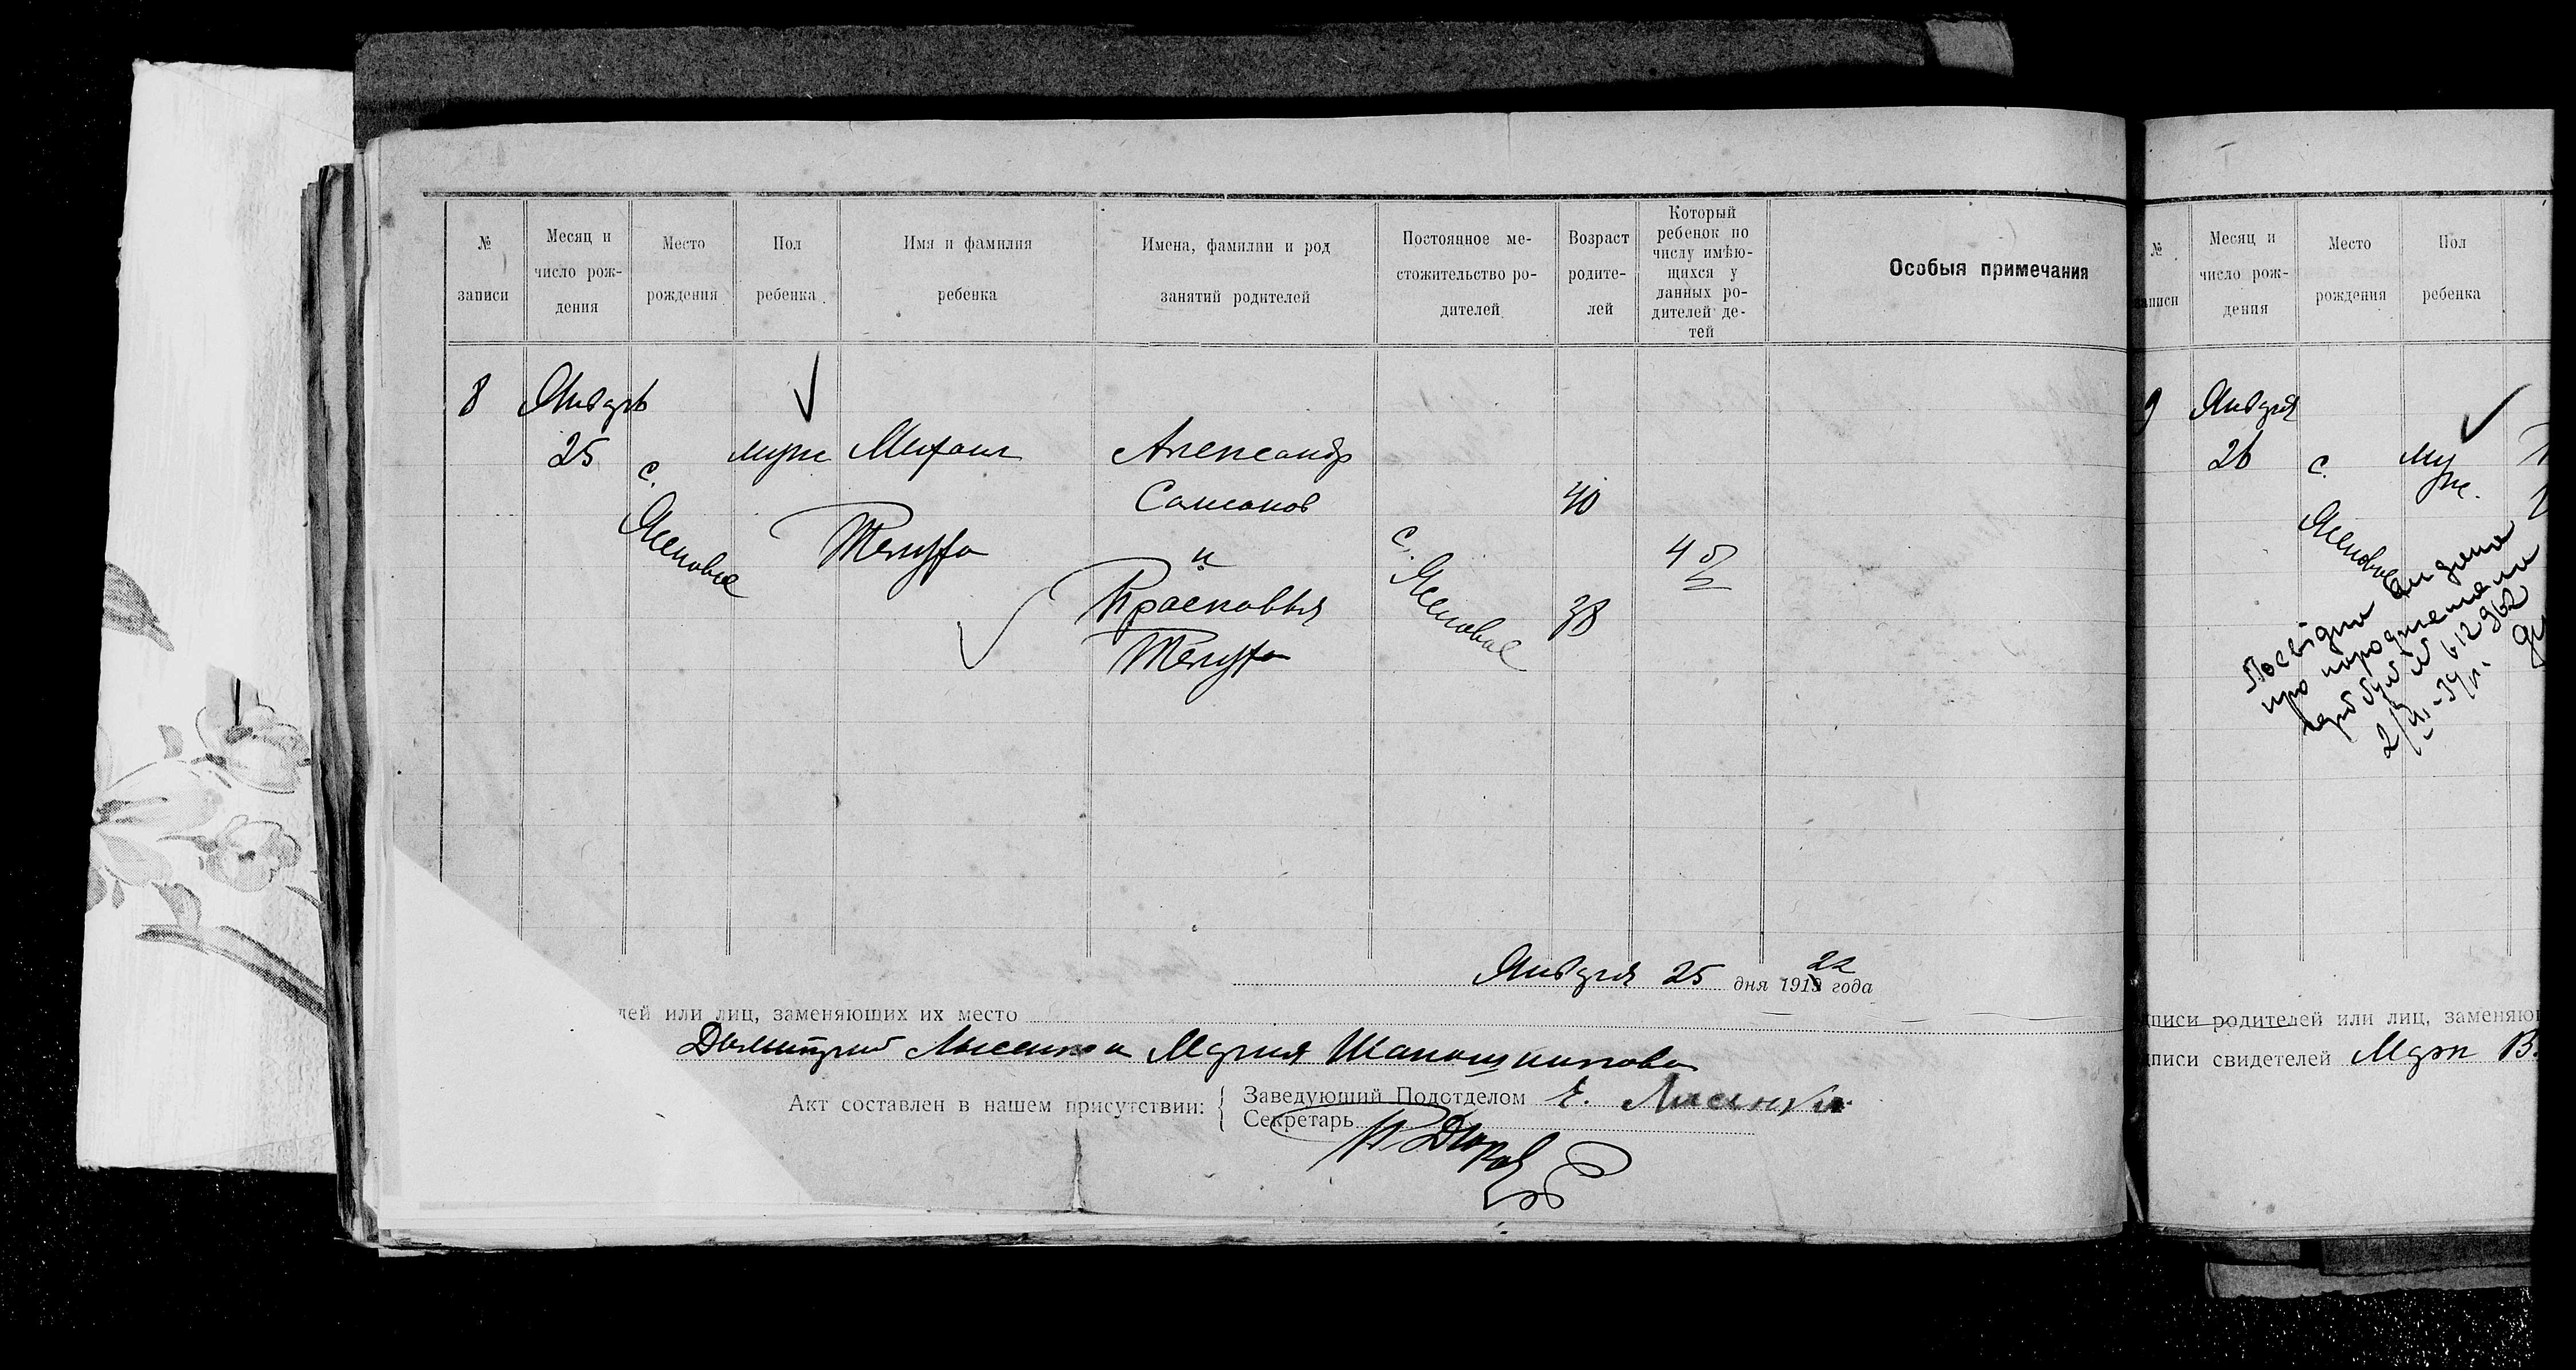 №
записи
Месяц и
число рож-
дения
Место
рождения
Пол
ребенка
Имя и фамилия
ребенка
Имена, фамилии и род
занятий родителей
Постоянное ме-
стожительство ро-
дителей
Возраст
родите-
лей
Который
ребенок по
числу имѣю-
щихся у
данных ро-
дителей де-
тей
Особыя примечания
8
Январь
25
с.
Ясеновое
муж
Михаил
Телуха
Александр
Самсонов
и
Телуха
с.
Ясеновое
40
38
4
Января 25 дня 1922 года
лей или лиц, заменяющих их место
Лысенко и Мария Шапошникова
Акт составлен в нашем присутствии:
Заведующий Подотделом Е. Лисенко
Секретарь
№
записи
Месяц и
число рож-
дения
Место
рождения
Пол
ребенка
9
Января
26
с.
Ясеновое
муж.
про народження
2/VI-39 р.
писи родителей или лиц, заменяю
писи свидетелей